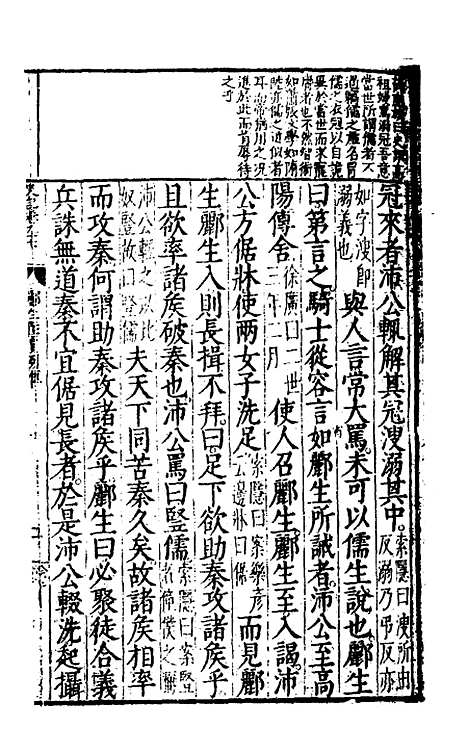 祖婦罵溺冠吾意
當世所謂儒者不
過竊儒之名冒
儒之衣冠以自詭
異於當世而求寵
如蕭張文學如隋
陸亦儒之近似者
耳而帝稍用之況
進於此而肯辱待
之乎
冠來者沛公輒解其冠溲溺其中。索隱曰溲所由反溺乃弔反亦
如字溲即溺義也與人言常大罵。未可以儒生說也酈生
曰第言之騎士從容言如酈生所誡者。沛公至高
陽傳舍徐廣曰二世三年二月使人召酈生。酈生至入謁。沛
公方倨牀使兩女子洗足索隱曰案樂彥云邊牀曰倨而見酈
生酈生入則長揖不拜。曰足下欲助秦攻諸侯乎
且欲率諸侯破秦也沛公罵曰豎儒索隱曰案豎者僮僕之稱
沛公輕之以比奴豎故曰豎儒夫天下同苦秦久矣故諸侯相率
而攻秦何謂助秦攻諸侯乎酈生曰必聚徒合義
兵誅無道秦不宜倨見長者。於是沛公輟洗起攝
酈生陸賈列傳